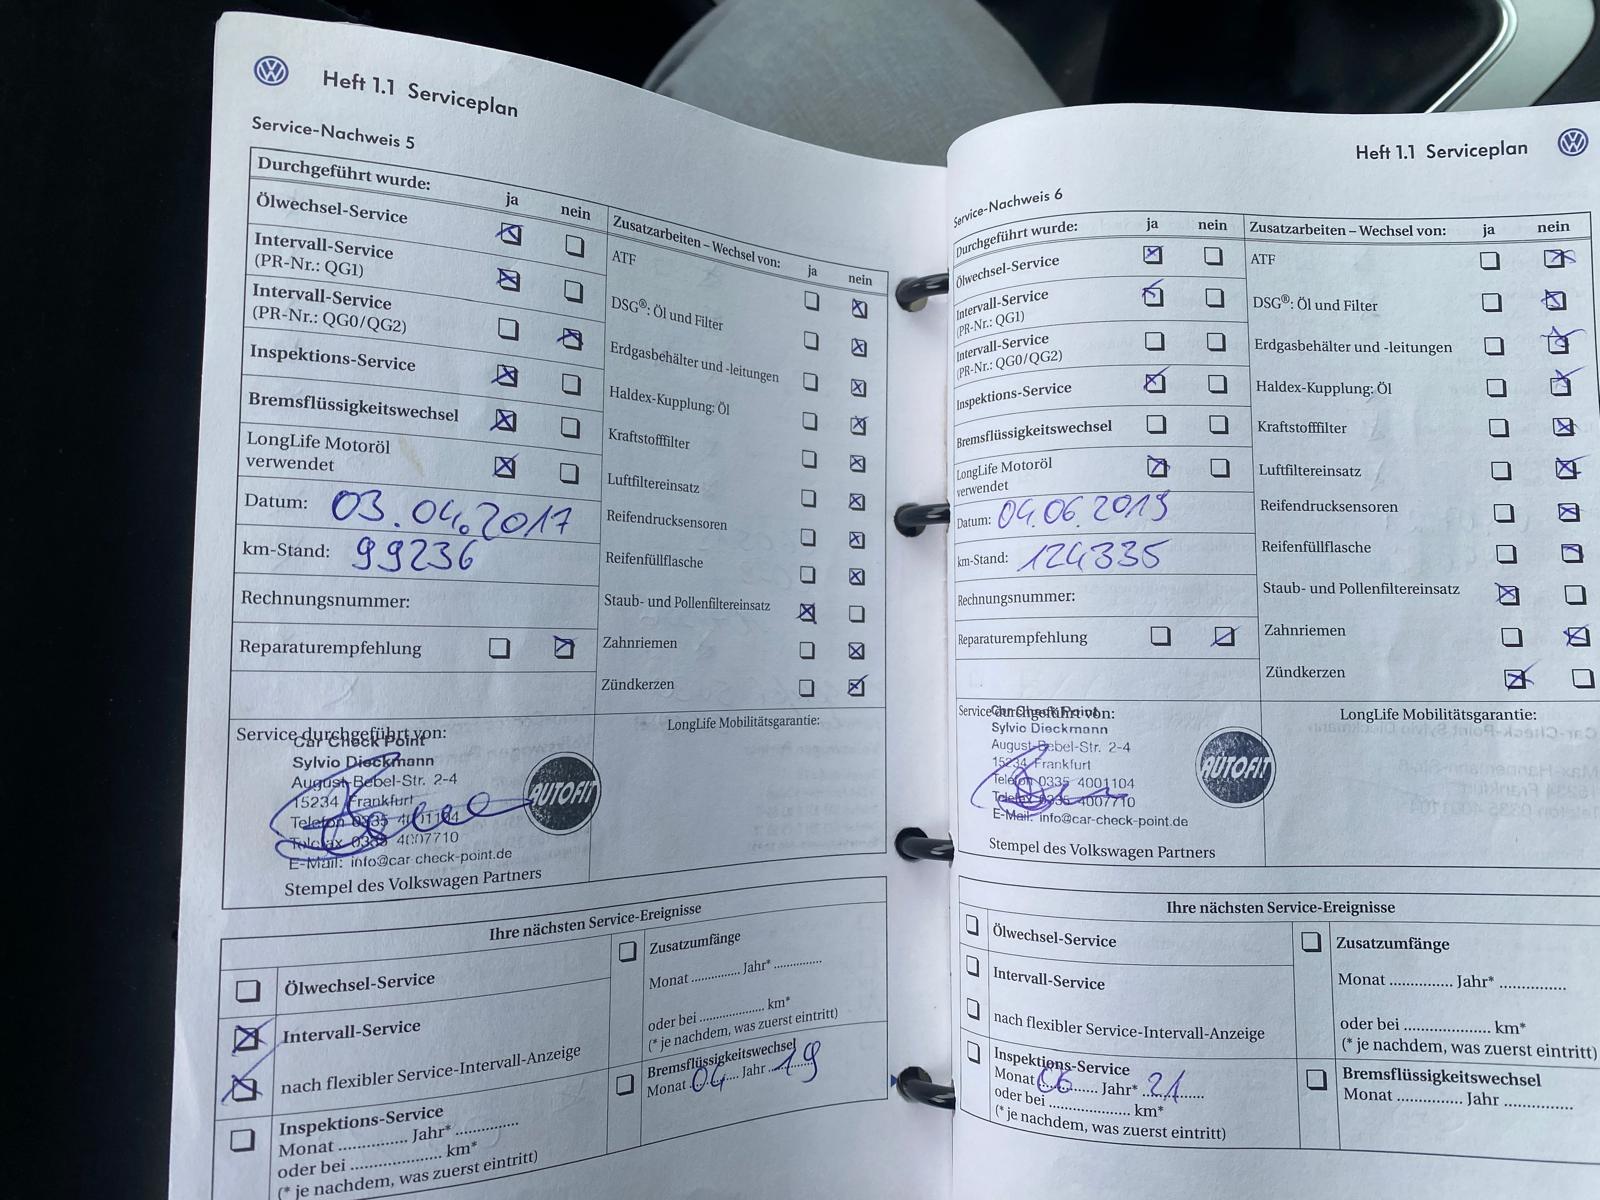 Heft 1.1 Serviceplan
Service-Nachweis 5
Durchgeführt wurde:
ja
nein
Ölwechsel-Service
Intervall-Service
(PR-Nr.: QG1)
Intervall-Service
(PR-Nr.: QG0/QG2)
Inspektions-Service
Bremsflüssigkeitswechsel
LongLife Motoröl
verwendet
Datum: 03.04.2017
km-Stand: 99236
Rechnungsnummer:
Reparaturempfehlung
Zusatzarbeiten – Wechsel von:
ja
nein
ATF
DSG®: Öl und Filter
Erdgasbehälter und -leitungen
Haldex-Kupplung: Öl
Kraftstofffilter
Luftfiltereinsatz
Reifendrucksensoren
Reifenfüllflasche
Staub- und Pollenfiltereinsatz
Zahnriemen
Zündkerzen
Service durchgeführt von:
Car Check Point
Sylvio Dieckmann
August-Bebel-Str. 2-4
15234 Frankfurt
Telefon 0335 4001104
Telefax 0335 4007710
E-Mail: info@car-check-point.de
AUTOFIT
Stempel des Volkswagen Partners
LongLife Mobilitätsgarantie:
Ihre nächsten Service-Ereignisse
Ölwechsel-Service
Intervall-Service
nach flexibler Service-Intervall-Anzeige
Inspektions-Service
Monat ............... Jahr* ...............
oder bei ..................... km*
(* je nachdem, was zuerst eintritt)
Zusatzumfänge
Monat ............. Jahr* .............
oder bei .................... km*
(* je nachdem, was zuerst eintritt)
Bremsflüssigkeitswechsel
Monat 04 Jahr 19
Heft 1.1 Serviceplan
Service-Nachweis 6
Durchgeführt wurde:
ja
nein
Ölwechsel-Service
Intervall-Service
(PR-Nr.: QG1)
Intervall-Service
(PR-Nr.: QG0/QG2)
Inspektions-Service
Bremsflüssigkeitswechsel
LongLife Motoröl
verwendet
Datum: 04.06.2019
km-Stand: 124335
Rechnungsnummer:
Reparaturempfehlung
Zusatzarbeiten – Wechsel von:
ja
nein
ATF
DSG®: Öl und Filter
Erdgasbehälter und -leitungen
Haldex-Kupplung: Öl
Kraftstofffilter
Luftfiltereinsatz
Reifendrucksensoren
Reifenfüllflasche
Staub- und Pollenfiltereinsatz
Zahnriemen
Zündkerzen
Service durchgeführt von:
Car Check Point
Sylvio Dieckmann
August-Bebel-Str. 2-4
15234 Frankfurt
Telefon 0335 4001104
Telefax 0335 4007710
E-Mail: info@car-check-point.de
AUTOFIT
Stempel des Volkswagen Partners
LongLife Mobilitätsgarantie:
Ihre nächsten Service-Ereignisse
Ölwechsel-Service
Intervall-Service
nach flexibler Service-Intervall-Anzeige
Inspektions-Service
Monat 06 Jahr* 21
oder bei ..................... km*
(* je nachdem, was zuerst eintritt)
Zusatzumfänge
Monat ............... Jahr* ...............
oder bei .................... km*
(* je nachdem, was zuerst eintritt)
Bremsflüssigkeitswechsel
Monat ............... Jahr ...............